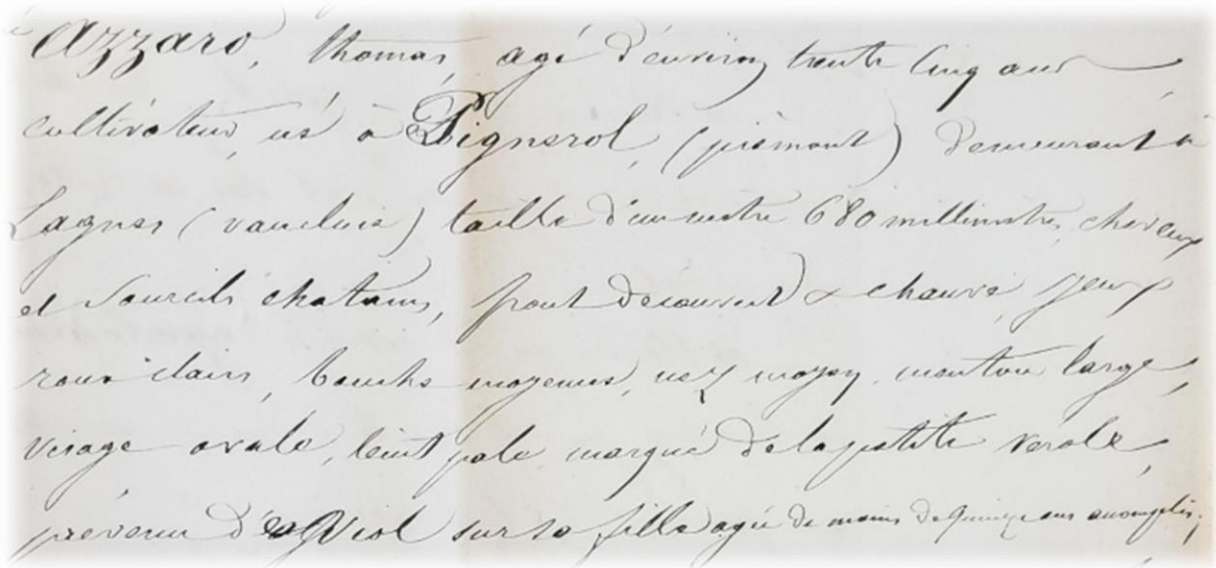 Azzaro, thomas, agé d'environ trente cinq ans
cultivateur, né à Pignerol, (piémont) demeurant à
Lagnes (vaucluse) taille d'un metre 680 millimetres, cheveux
et Sourcils chatains, front découvert & chauve, yeux
roux clairs, bouche moyenne, nez moyen, menton large,
visage ovale, teint pale marqué de la petite verole,
prévenu de Viol sur sa fille agée de moins de quinze ans accomplis;